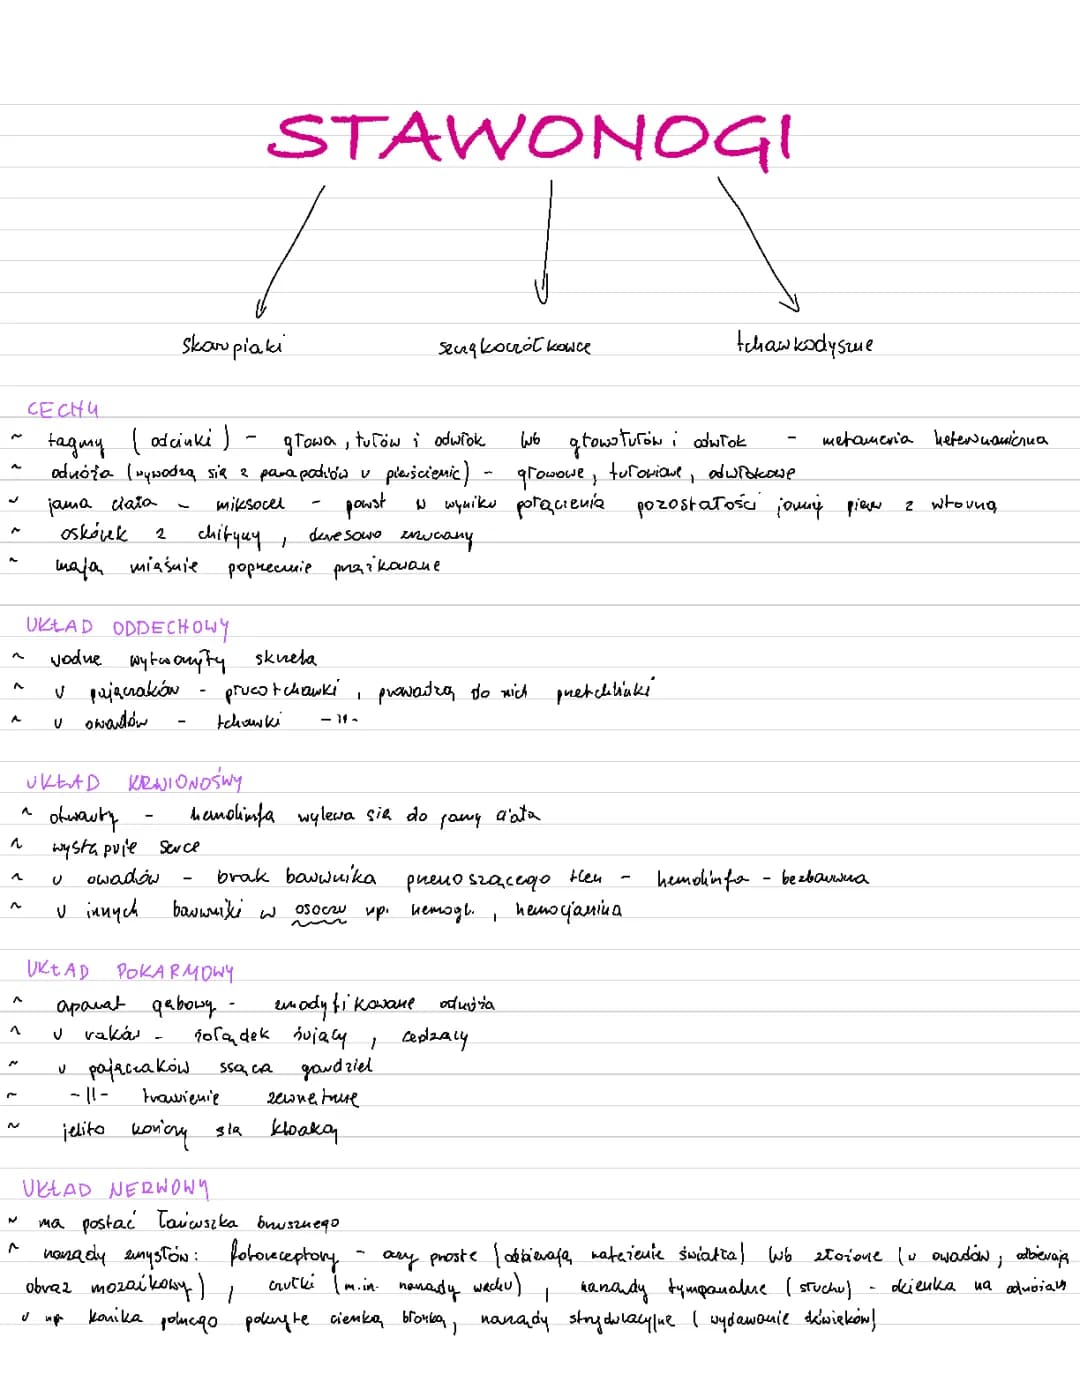 STAWONOGI
skorupiaki szczękoczółkowce tchawkodyszne
CECHY
~ tagmy (odcinki) - głowa, tułów i odwłok lub głowotułów i odwłok - metameria heteronomiczna
~ odnóża (wywodzą się z parapodiów u pierścienic) - głowowe, tułowiowe, odwłokowe
~ jama ciała - miksocel - powst w wyniku połączenia pozostałości jamy pierw z wtórną
~ oskórek z chityny, okresowo zrzucany
~ mają mięśnie poprzecznie prążkowane
UKŁAD ODDECHOWY
~ wodne wytworzyły skrzela
~ u pajęczaków - płucotchawki, prowadzą do nich przetchlinki
~ u owadów - tchawki -11-
UKŁAD KRWIONOŚWY
~ otwarty - hemolimfa wylewa się do jamy ciała
~ występuje serce
~ u owadów - brak barwnika przenoszącego tlen - hemolimfa - bezbarwna
~ u innych barwniki w osoczu np. hemogl., hemocjanina
UKŁAD POKARMOWY
~ aparat gębowy - zmodyfikowane odnóża
~ u raków - żołądek żujący, cedzący
~ u pajęczaków ssąca gardziel
~ -11- trawienie zewnętrzne
~ jelito kończy się kloaką
UKŁAD NERWOWY
~ ma postać łańcuszka brzusznego
~ narządy zmysłów: fotoreceptory - oczy proste (odbierają natężenie światła) lub złożone (u owadów, odbierają
obraz mozaikowy), czułki (m.in. narządy węchu), narządy tympanalne (słuchu) - okienka na odnóżach
u np konika polnego pokryte cienką błonką, narządy strydulacyjne (wydawanie dźwięków)